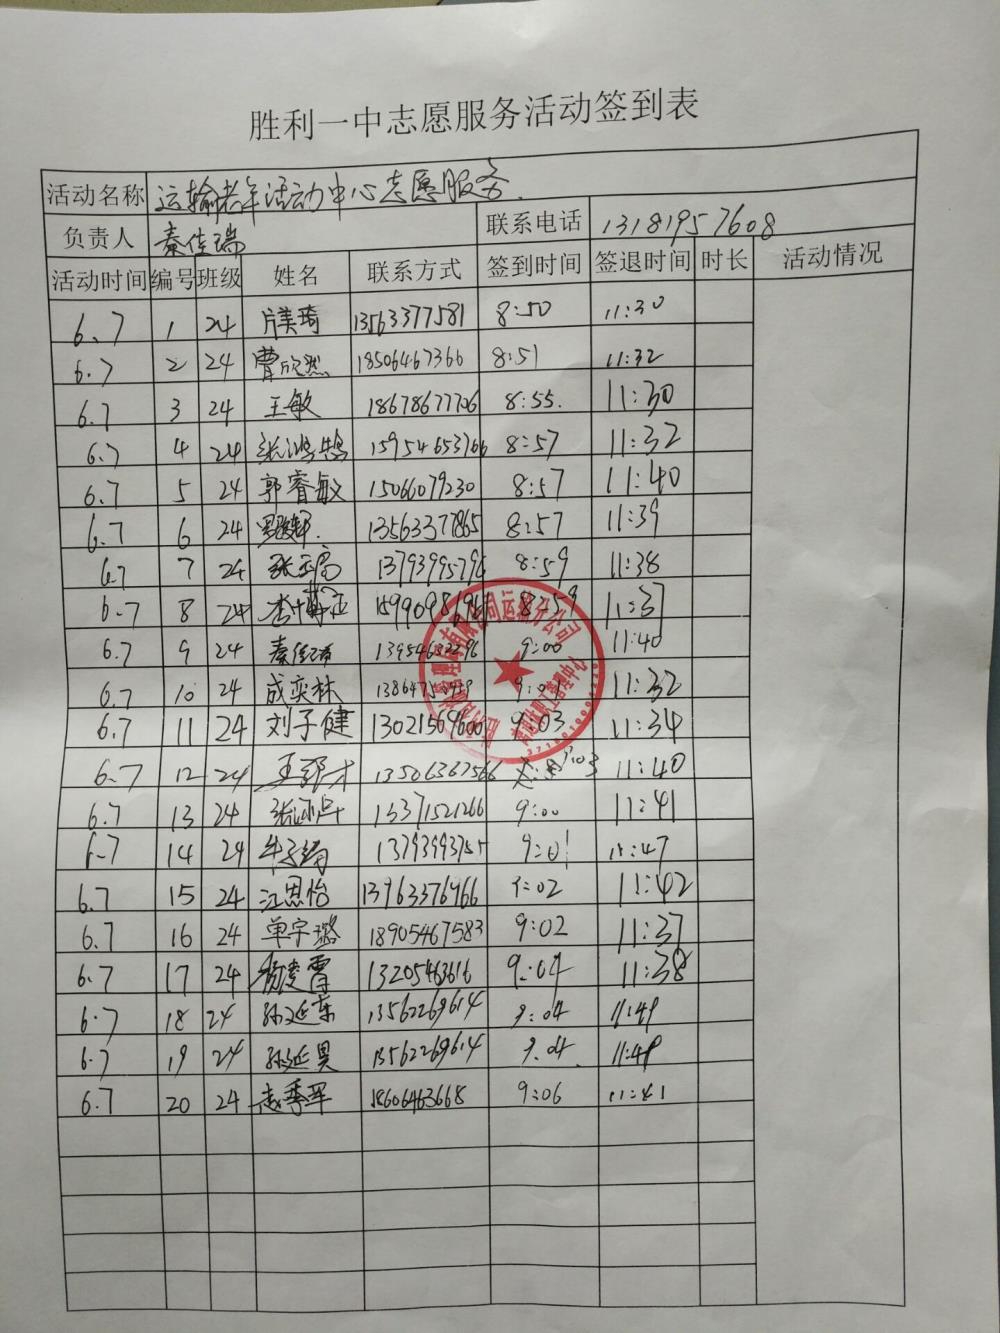 胜利一中志愿服务活动签到表
活动名称 运输老年活动中心志愿服务
负责人 秦佳瑞 联系电话 13181957608
活动时间 编号 班级 姓名 联系方式 签到时间 签退时间 时长 活动情况
6.7 1 24 13563377581 8:50 11:30
6.7 2 24 曹欣然 18506467366 8:51 11:32
6.7 3 24 王敏 18678677706 8:55. 11:30
6.7 4 24 张鸿鹄 15954653766 8:57 11:32
6.7 5 24 郭睿敏 15066079230 8:57 11:40
6.7 6 24 13563377865 8:57 11:39
6.7 7 24 8:59 11:38
6.7 8 24 8:59 11:37
6.7 9 24 秦佳瑞 9:00 11:40
6.7 10 24 成奕林 11:32
6.7 11 24 刘子健 13021569600 9:03 11:34
6.7 12 24 13506367566 11:40
6.7 13 24 15371521266 9:00 11:41
6.7 14 24 9:01 11:47
6.7 15 24 江思怡 13963376966 9:02 11:42
6.7 16 24 单宇璐 18905467583 9:02 11:37
6.7 17 24 13205463616 9:04 11:38
6.7 18 24 孙延东 13562269614 9:04 11:49
6.7 19 24 孙延昊 13562269614 9.04 11:49
6.7 20 24 18606463668 9:06 11:41